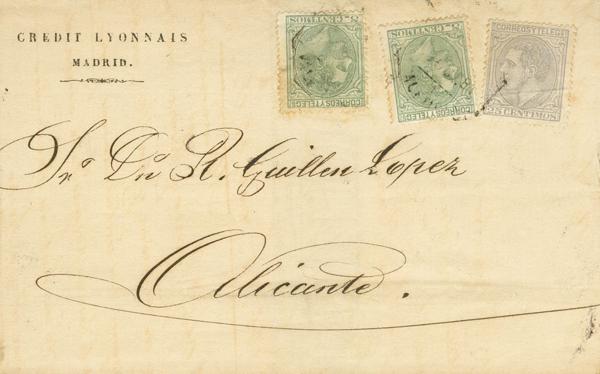 CREDIT LYONNAIS
MADRID.
5 CENTIMOS
CORREOS Y TELEGS
5 CENTIMOS
CORREOS Y TELEGS
CORREOS Y TELEGS
25 CENTIMOS
Sr. Dn R. Guillen Lopez
Alicante.